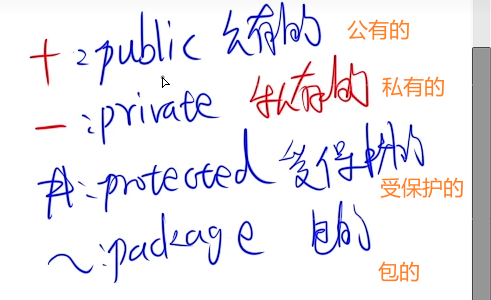 +:public 公有的 公有的
-:private 私有的 私有的
#:protected 受保护的 受保护的
~:package 包的 包的